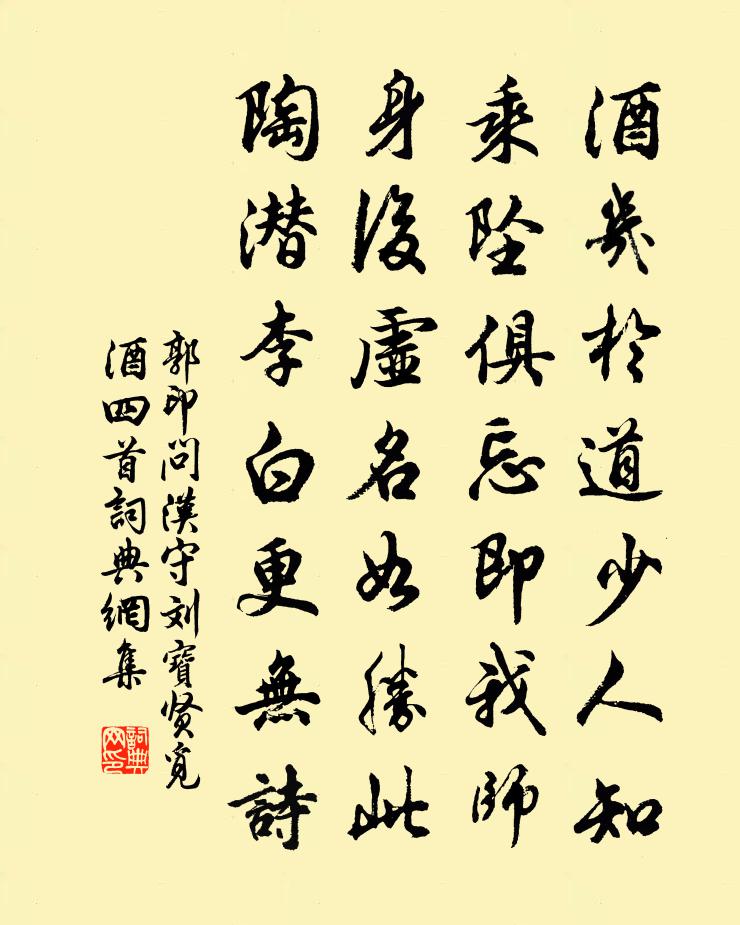 酒幾於道少人知
乘墜俱忘即我師
身後虛名如勝此
陶潜李白更無詩
郭印問漢守刘寶贤覓
酒四首詞典網集
詞典
网印